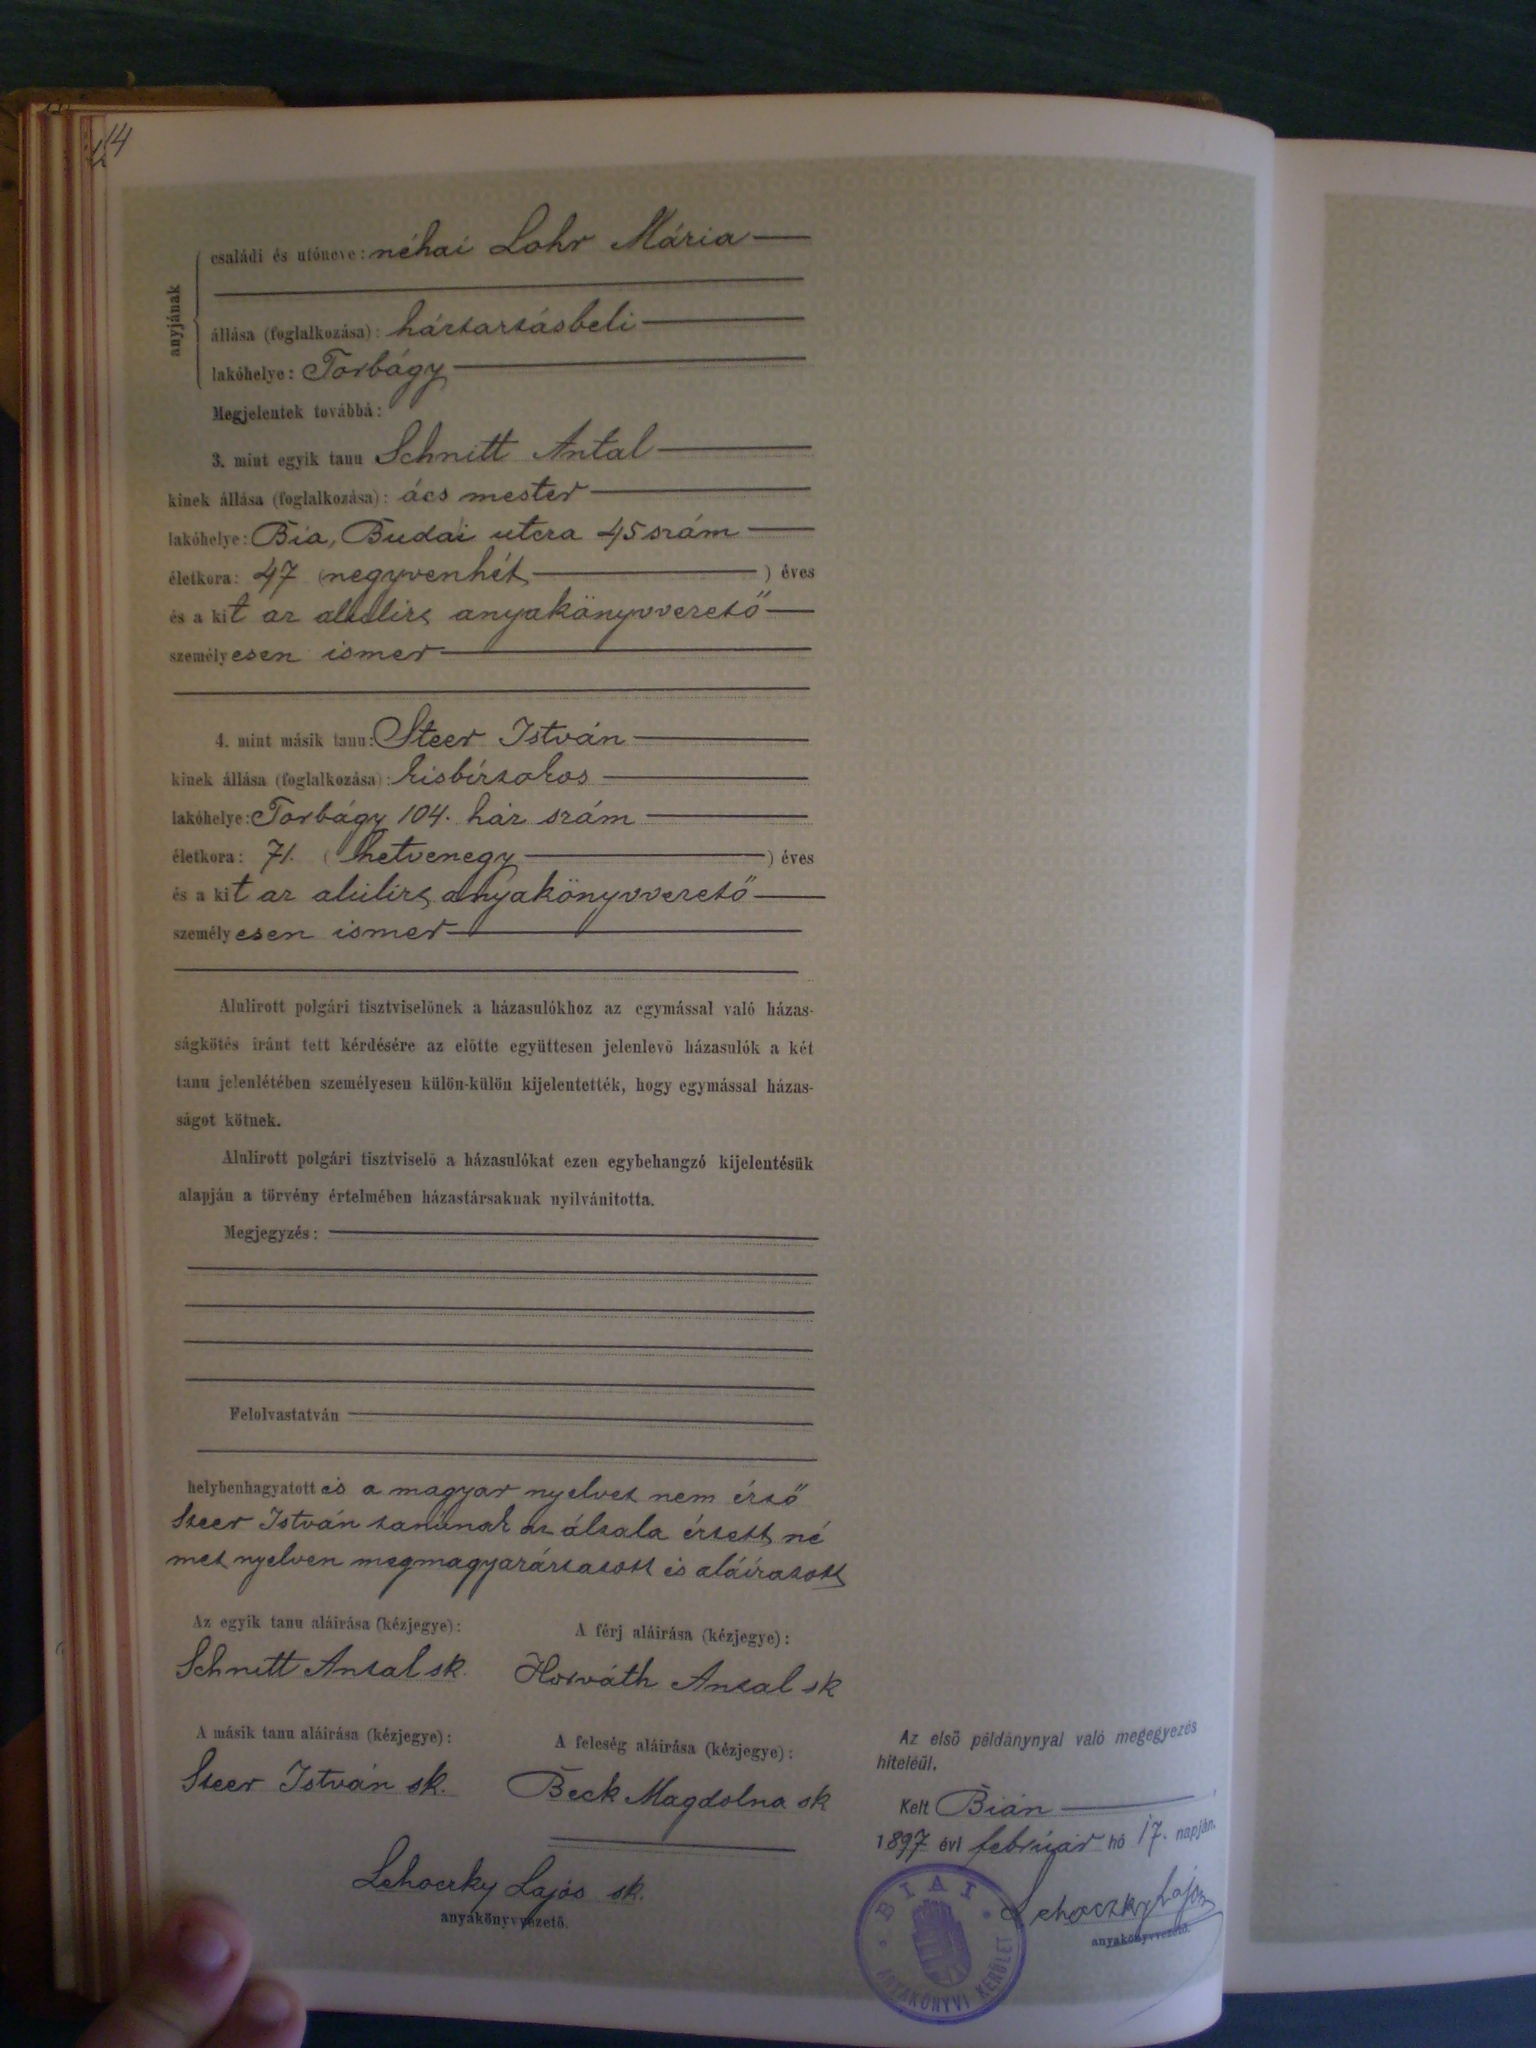 14
anyjának
családi és utóneve: néhai Lohr Mária
állása (foglalkozása): háztartásbeli
lakóhelye: Torbágy
Megjelentek továbbá:
3. mint egyik tanu Schnitt Antal
kinek állása (foglalkozása): ács mester
lakóhelye: Bia, Budai utcza 45 szám
életkora: 47 (negyvenhét) éves
és a kit az alulírt anyakönyvvezető
személyesen ismer
4. mint másik tanu: Steer István
kinek állása (foglalkozása): kisbirtokos
lakóhelye: Torbágy 104. ház szám
életkora: 71. (hetvenegy) éves
és a kit az alulírt anyakönyvvezető
személyesen ismer
Alulirott polgári tisztviselőnek a házasulókhoz az egymással való házas-
ságkötés iránt tett kérdésére az előtte együttesen jelenlevő házasulók a két
tanu jelenlétében személyesen külön-külön kijelentették, hogy egymással házas-
ságot kötnek.
Alulirott polgári tisztviselő a házasulókat ezen egybehangzó kijelentésük
alapján a törvény értelmében házastársaknak nyilvánitotta.
Megjegyzés:
Felolvastatván
helybenhagyatott és a magyar nyelvet nem értő
Steer István tanúnak az általa értett né
met nyelven megmagyaráztatott és aláíratott
Az egyik tanu aláirása (kézjegye):
Schnitt Antal sk.
A férj aláirása (kézjegye):
Horváth Antal sk
A másik tanu aláirása (kézjegye):
Steer István sk.
A feleség aláirása (kézjegye):
Beck Magdolna sk
Lehoczky Lajos sk.
anyakönyvvezető.
Az első példánynyal való megegyezés
hiteléül.
Kelt Bián
1897 évi február hó 17. napján.
Lehoczky Lajos
anyakönyvvezető.
BIAI
ANYAKÖNYVI KERÜLET